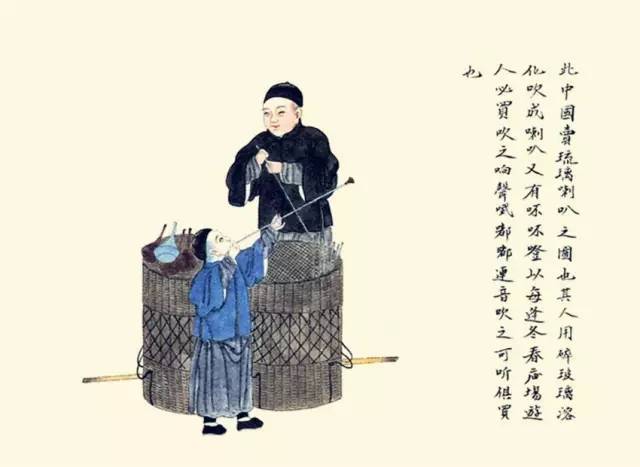 此中國賣琉璃喇叭之圖也其人用碎玻璃溶
化吹成喇叭又有呸呸噔以每逢冬春店場遊
人必買吹之响聲哦嘟嘟連音吹之可听俱買
也